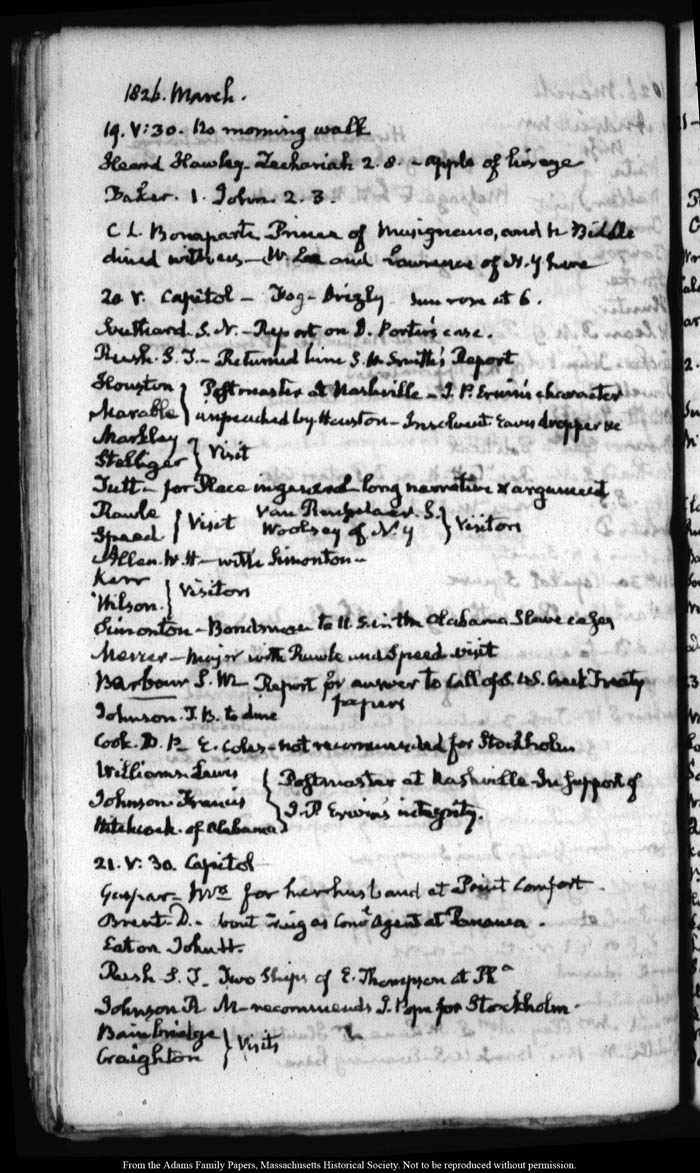 1826. March.
19. V:30. No morning walk
Heard Hawley Zechariah 2. 8. - apple of his eye
Baker. 1. John. 2. 3.
C. L. Bonaparte Prince of Musignano, and N Biddle
dined with us - W. Lee and Lawrence of N.Y here
20 V. Capitol - Fog - Drizly Sun rose at 6.
Southard. S. N. - Report on D. Porter's case.
Rush. S. T. - Returned him S. H. Smith's Report
Houston } Postmaster at Nashville - J. P. Erwin's character
Marable } impeached by Houston - Insolvent. Eaves dropper &c
Markley } Visit
Tutt - for Place in general long narrative & argument
Rawle } Visit Van Rensselaer. S. } Visitors
Speed } Woolsey of N. Y
Allen. W. H - with Simonton -
Kerr } Visitors
Wilson.
Simonton - Bondsman to U. S. in the Alabama Slave cases
Mercer - Major with Rawle and Speed visit
Barbour S. W. Report for answer to Call of S. U.S. Creek Treaty
papers
Johnson. J. B. to dine
Cook. D. P - E. Coles - not recommended for Stockholm
Williams. Lewis } Postmaster at Nashville - In support of
Johnson. Francis } J. P. Erwin's integrity.
Hitchcock of Alabama
21. V: 30. Capitol -
Gaspar - Mrs for her husband at Point Comfort.
Brent. D. - bout as Coml Agent at Panama.
Eaton John H.
Rush S. T. Two Ships of E. Thompson at Pha
Johnson R M - recommends J. Pope for Stockholm -
Bainbridge } Visits
Craighton
From the Adams Family Papers, Massachusetts Historical Society. Not to be reproduced without permission.